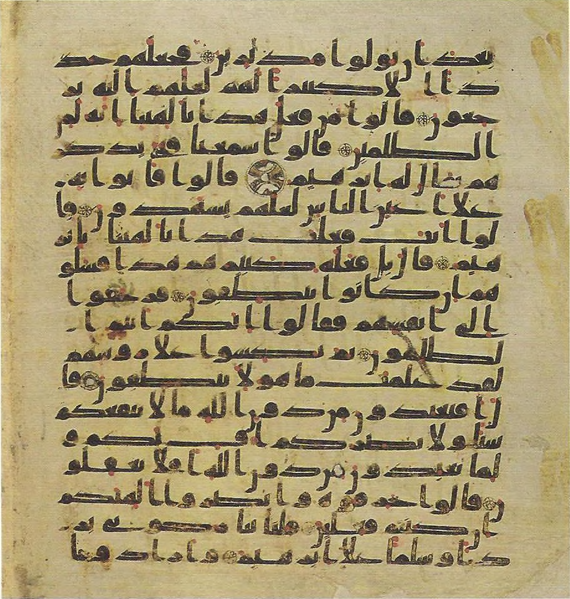 بعد ان تولوا مدبرين فجعلهم جذ
ذا الا كبيرا لهم لعلهم اليه ير
جعون قالوا من فعل هذا بالهتنا انه لم
ن الظلمين قالوا سمعنا فتى يذكر
هم يقال له ابرهيم قالوا فاتوا به
على اعين الناس لعلهم يشهدون قا
لوا انت فعلت هذا بالهتنا يابر
هيم قال بل فعله كبيرهم هذا فسلو
هم ان كانوا ينطقون فرجعوا
الى انفسهم فقالوا انكم انتم ا
لظلمون ثم نكسوا على روسهم
لقد علمت ما هولا ينطقون قا
ل افتعبدون من دون الله ما لا ينفعكم
شيا ولا يضركم اف لكم و
لما تعبدون من دون الله افلا تعقلو
ن قالوا حرقوه وانصروا الهتكم
ان كنتم فعلين قلنا ينار كوني بر
دا وسلما على ابرهيم وارادوا